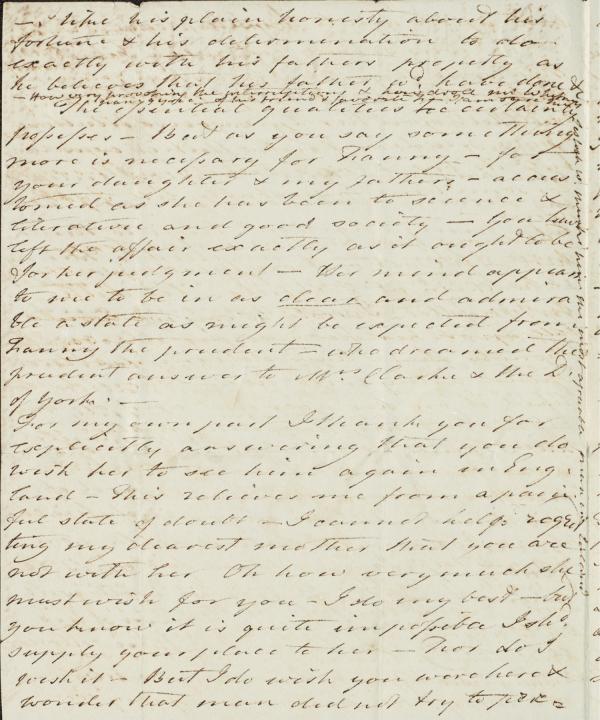 — I like his plain honesty about his
fortune & his determination to do
exactly with his fathers property as
he believes that his father wd have done &
— However provoking the interruptions & how droll
The essential qualities he certainly
possesses — But as you say something
more is necessary for Fanny — for
your daughter & my fathers — accus
tomed as she has been to science &
literature and good society — You have
left the affair exactly as it ought to be
for her judgment — Her mind appears
to me to be in as clear and admira
ble a state as might be expected from
Fanny the prudent — who dreamed the
prudent answer to Mrs Clarke & the D.
of York. —
For my own part I thank you for
explicitly answering that you do
wish her to see him again in Eng
land — This relieves me from a pain
ful state of doubt — I cannot help regret
ting my dearest mother that you are
not with her Oh how very much she
must wish for you — I do my best — but
you know it is quite impossible I shd
supply your place to her — Nor do I
wish it — But I do wish you were here &
wonder that man did not try to per=